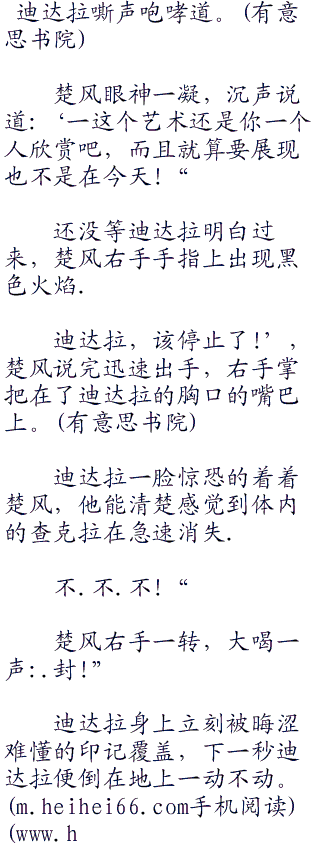 迪达拉嘶声咆哮道。(有意
思书院)
楚风眼神一凝，沉声说
道:‘一这个艺术还是你一个
人欣赏吧，而且就算要展现
也不是在今天!“
还没等迪达拉明白过
来，楚风右手手指上出现黑
色火焰.
迪达拉，该停止了!’，
楚风说完迅速出手，右手掌
把在了迪达拉的胸口的嘴巴
上。(有意思书院)
迪达拉一脸惊恐的着着
楚风，他能清楚感觉到体内
的查克拉在急速消失.
不.不.不!“
楚风右手一转，大喝一
声:.封!”
迪达拉身上立刻被晦涩
难懂的印记覆盖，下一秒迪
达拉便倒在地上一动不动。
(m.heihei66.com手机阅读)
(www.h